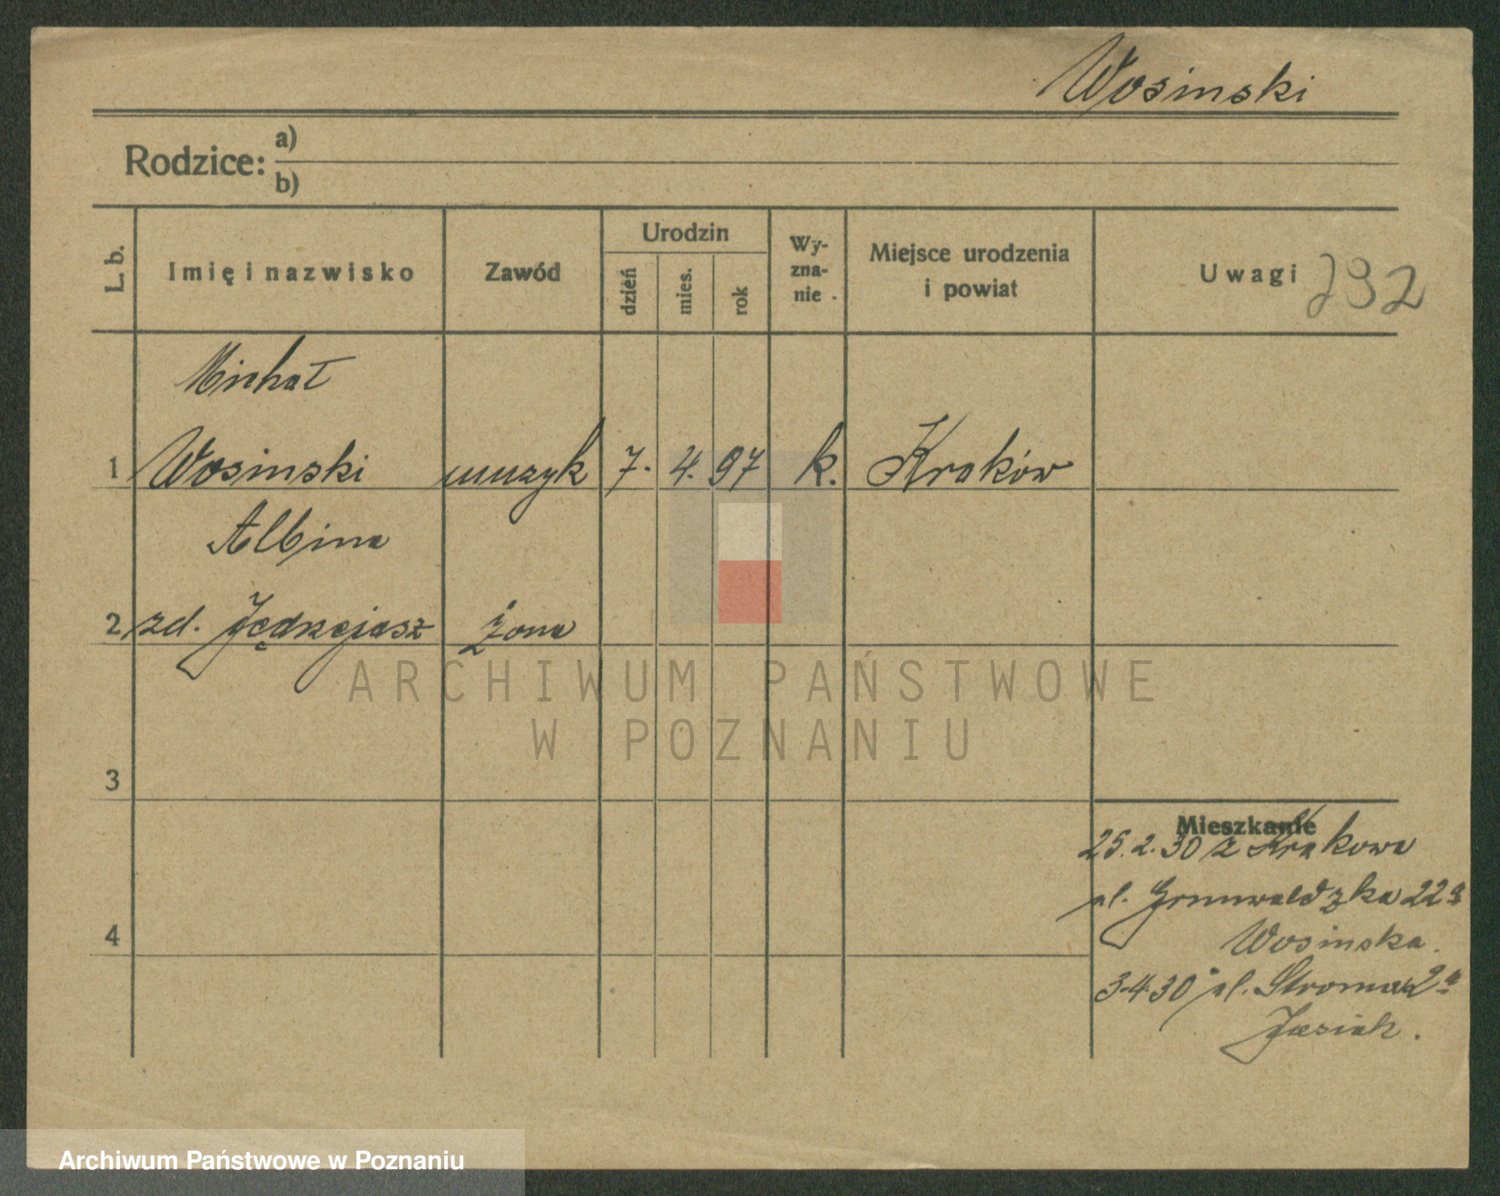 Wosinski
Rodzice: a)
b)
L. b.
Imię i nazwisko
Zawód
Urodzin
dzień
mies.
rok
Wy-
zna-
nie
Miejsce urodzenia
i powiat
Uwagi 292
Michał
1 Wosinski muzyk 7. 4. 97 k. Kraków
Albina
2 zd. Jędrzejasz żona
3
4
Mieszkanie
25.2.30 z Krakowa
ul. Grunwaldzka 22a
Wosinska.
3.4.30 ul. Stroma 2a
Jasiak.
ARCHIWUM PAŃSTWOWE
W POZNANIU
Archiwum Państwowe w Poznaniu